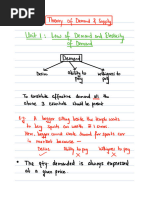 Theory of Demand & Supply
Unit 1 : Law of Demand and Elasticity of Demand
Demand
Desire Ability to pay Willingness to pay
To constitute effective demand all the above 3 elements should be present
Eg A beggar sitting beside the length wants to buy Sports car worth ₹ 1 crore.
Here, beggar cannot create demand for sports car
Desire Ability to pay Willingness to pay
The qty demanded is always expressed at a given price.